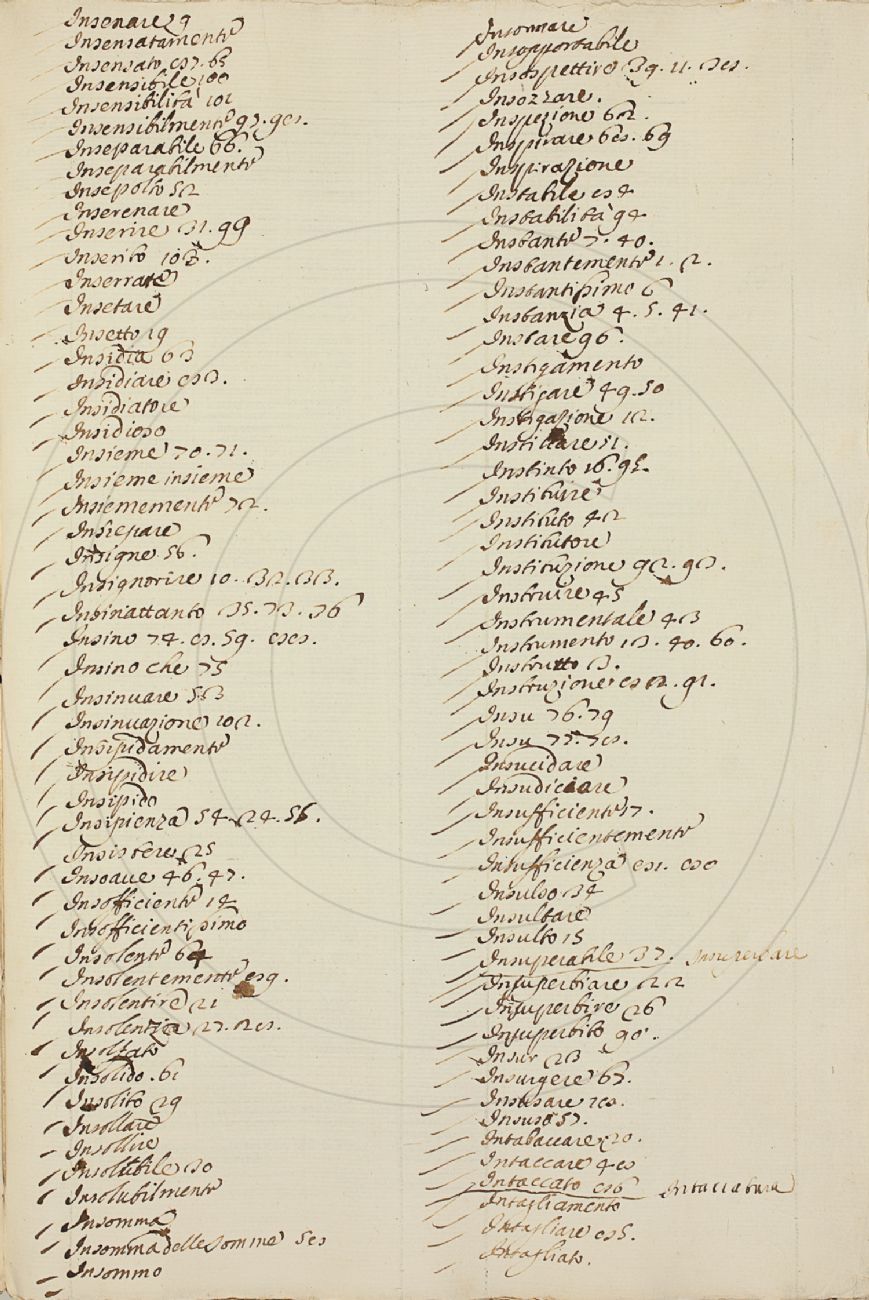 Insenare 9
Insensatamente
Insensato 87. 65
Insensibile 100
Insensibilità 101
Insensibilmente 97. 98.
Inseparabile 66.
Inseparabilmente
Insepolto 52
Inserenare
Inserire 31. 99
Inserito 103.
Inserrate
Insetare
Insetto 19
Insidia 63
Insidiare 83.
Insidiatore
Insidioso
Insieme 70. 71.
Insieme insieme
Insiememente 72.
Insiepare
Insigne 56.
Insignorire 10. 32. 33.
Insinattanto 35. 73. 36
Insino 74. 8. 59. 88.
Insino che 75
Insinuare 553
Insinuazione 102.
Insipidamente
Insipidire
Insipido
Insipienza 54. 24. 55.
Insistere 25
Insoave 46. 47.
Insofficiente 14
Insofficientissimo
Insolente 64
Insolentemente 89.
Insolentire 21
Insolenzia 27. 28.
Insolfato
Insolido. 61
Insolito 29
Insollare
Insollire
Insolubile 30
Insolubilmente
Insomma
Insomma delle somme 58
Insommo
Insonnare
Insopportabile
Insospettire 39. 11. 38.
Insozzare.
Inspezione 62.
Inspirare 68. 69
Inspirazione
Instabile 84
Instabilità 94
Instante 7. 40.
Instantemente 1. 2.
Instantissimo 6
Instanzia 4. 5. 41.
Instare 96.
Instigamento
Instigare 49. 50
Instigazione 12.
Instillare 51.
Instinto 16. 95.
Instituire
Instituto 42
Institutore
Instituzione 92. 93.
Instruire 45
Instrumentale 43
Instrumento 13. 40. 60.
Instrutto 3.
Instruzione 82. 91.
Insu 76. 79
Insu 77. 78.
Insucidare
Insudiciare
Insufficiente 17.
Insufficientemente
Insufficienza 81. 80
Insulso 34
Insultare
Insulto 15
Insuperabile 37. Insuperbare
Insuperbiare 22
Insuperbire 26
Insuperbito 90.
Insur 23
Insurgere 67.
Insusare 18.
Insuso 57.
Intabaccare 20.
Intaccare 48
Intaccato 86 Intaccatura
Intagliamento
Intagliare 85.
Intagliato.